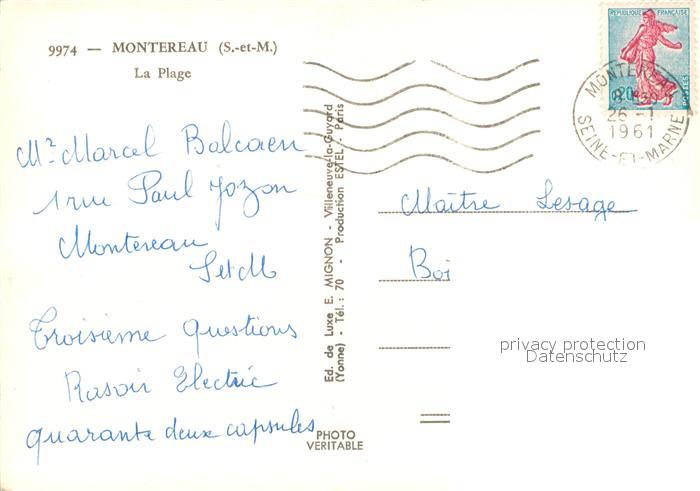 9974 — MONTEREAU (S.-et-M.)
La Plage
Mr Marcel Balcaen
1 rue Paul Jozon
Montereau
S et M
Troisieme questions
Rasoir Electric
quarante deux capsules
Ed. de Luxe E. MIGNON - Villeneuve-la-Guyard
(Yonne) - Tél. : 70 - Production ESTEL - Paris
PHOTO
VERITABLE
REPUBLIQUE FRANÇAISE
0,20
POSTES
MONTEREAU
26 - 1
1961
SEINE-ET-MARNE
Maître Lesage
Boi
privacy protection
Datenschutz